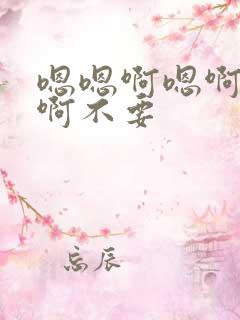 嗯嗯啊嗯啊
啊不要
忘辰